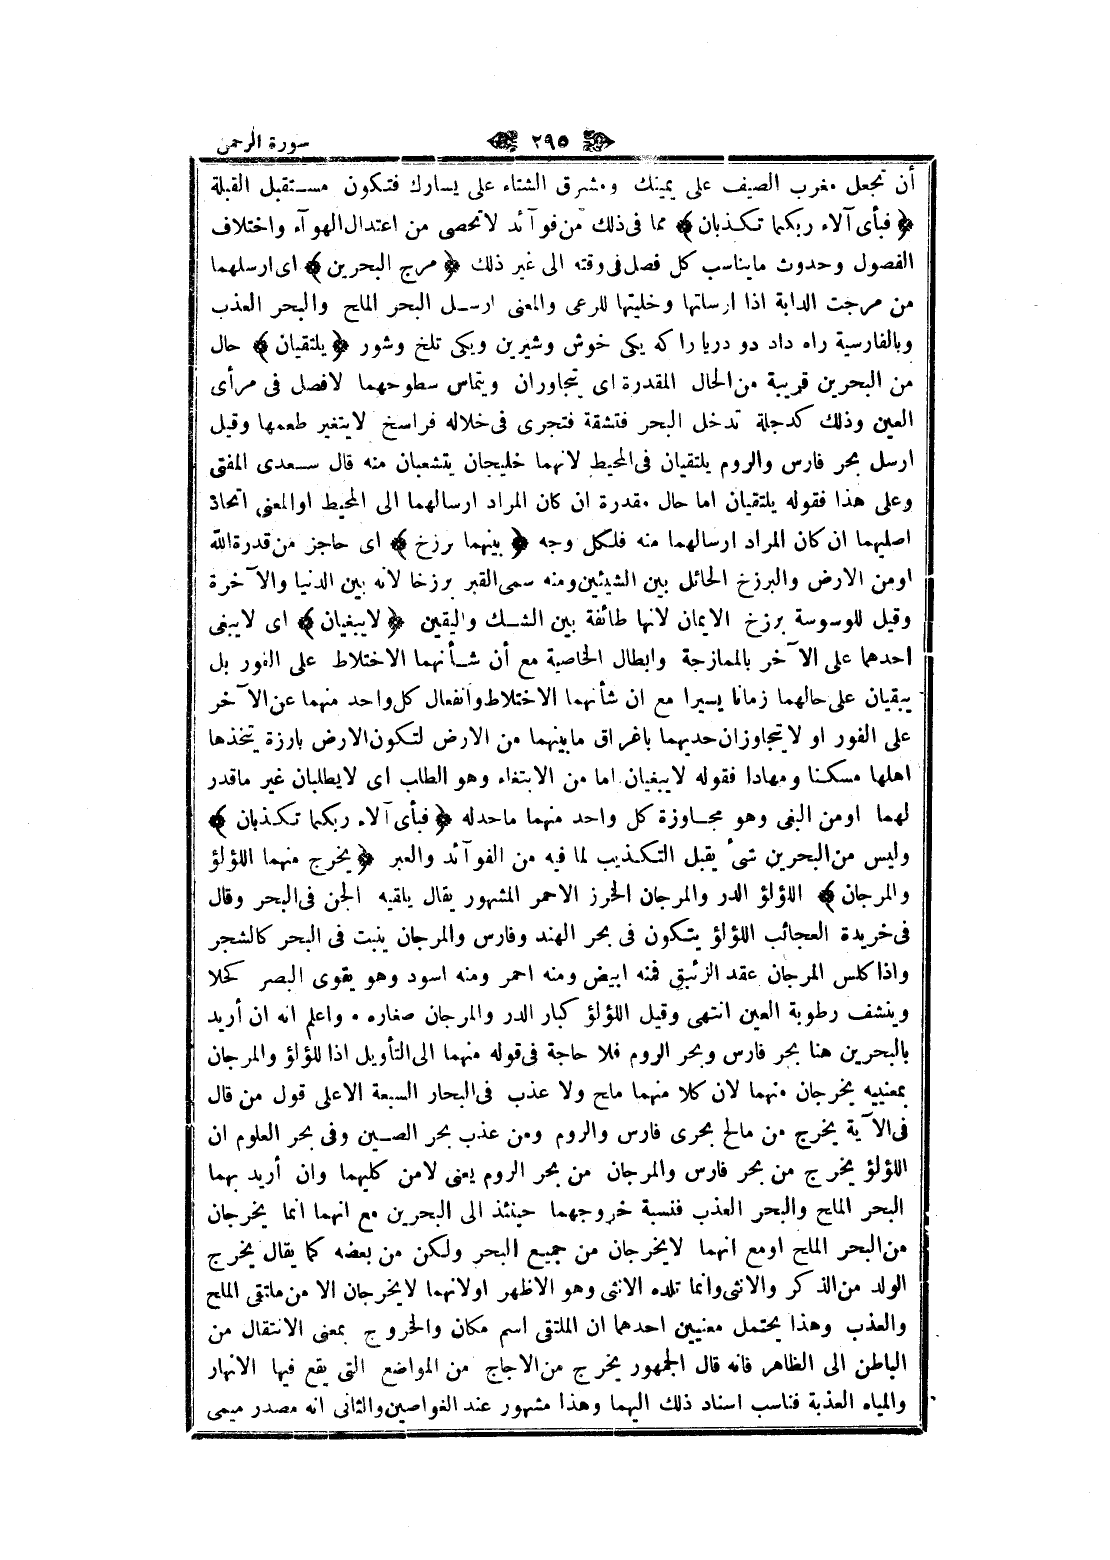 سورة الرحمن
٢٩٥
أن تجعل مغرب الصيف على يمينك ومشرق الشتاء على يسارك فتكون مستقبل القبلة
﴿ فبأى آلاء ربكما تكذبان ﴾ مما فى ذلك من فوآئد لاتحصى من اعتدال الهوآء واختلاف
الفصول وحدوث مايناسب كل فصل فى وقته الى غير ذلك ﴿ مرج البحرين ﴾ اى ارسلهما
من مرجت الدابة اذا ارسلتها وخليتها للرعى والمعنى ارسل البحر الملح والبحر العذب
وبالفارسية راه داد دو دريا را كه يكى خوش وشيرين ويكى تلخ وشور ﴿ يلتقيان ﴾ حال
من البحرين قريبة من الحال المقدرة اى يتجاوران ويتماس سطوحهما لافصل فى مرأى
العين وذلك كدجلة تدخل البحر فتشقة فتجرى فى خلاله فراسخ لايتغير طعمها وقيل
ارسل بحر فارس والروم يلتقيان فى المحيط لانهما خليجان يتشعبان منه قال سعدى المفتى
وعلى هذا فقوله يلتقيان اما حال مقدرة ان كان المراد ارسالهما الى المحيط اوالمعنى اتحاد
اصليهما ان كان المراد ارسالهما منه فلكل وجه ﴿ بينهما برزخ ﴾ اى حاجز من قدرة الله
اومن الارض والبرزخ الحائل بين الشيئين ومنه سمى القبر برزخا لانه بين الدنيا والآخرة
وقيل للوسوسة برزخ الايمان لانها طائفة بين الشك واليقين ﴿ لايبغيان ﴾ اى لايبغى
احدهما على الآخر بالممازجة وابطال الخاصية مع أن شأنهما الاختلاط على الفور بل
يبقيان على حالهما زمانا يسيرا مع ان شأنهما الاختلاط وانفعال كل واحد منهما عن الآخر
على الفور او لايتجاوزان حديهما باغراق مابينهما من الارض لتكون الارض بارزة يتخذها
اهلها مسكنا ومهادا فقوله لايبغيان اما من الابتغاء وهو الطلب اى لايطلبان غير ماقدر
لهما اومن البغى وهو مجاوزة كل واحد منهما ماحدله ﴿ فبأى آلاء ربكما تكذبان ﴾
وليس من البحرين شىء يقبل التكذيب لما فيه من الفوآئد والعبر ﴿ يخرج منهما اللؤلؤ
والمرجان ﴾ اللؤلؤ الدر والمرجان الخرز الاحمر المشهور يقال يلقيه الجن فى البحر وقال
فى خريدة العجائب اللؤلؤ يتكون فى بحر الهند وفارس والمرجان ينبت فى البحر كالشجر
واذا كلس المرجان عقد الزئبق فمنه ابيض ومنه احمر ومنه اسود وهو يقوى البصر كحلا
وينشف رطوبة العين انتهى وقيل اللؤلؤ كبار الدر والمرجان صغاره • واعلم انه ان أريد
بالبحرين هنا بحر فارس وبحر الروم فلا حاجة فى قوله منهما الى التأويل اذا للؤلؤ والمرجان
بمعنييه يخرجان منهما لان كلا منهما ملح ولا عذب فى البحار السبعة الاعلى قول من قال
فى الآية يخرج من مالح بحرى فارس والروم ومن عذب بحر الصين وفى بحر العلوم ان
اللؤلؤ يخرج من بحر فارس والمرجان من بحر الروم يعنى لامن كليهما وان أريد بهما
البحر الملح والبحر العذب فنسبة خروجهما حينئذ الى البحرين مع انهما انما يخرجان
من البحر الملح اومع انهما لايخرجان من جميع البحر ولكن من بعضه كما يقال يخرج
الولد من الذكر والانثى وانما تلده الانثى وهو الاظهر اولانهما لايخرجان الا من ملتقى الملح
والعذب وهذا يحتمل معنيين احدهما ان الملتقى اسم مكان والخروج بمعنى الانتقال من
الباطن الى الظاهر فانه قال الجمهور يخرج من الاجاج من المواضع التى يقع فيها الانهار
والمياه العذبة فناسب اسناد ذلك اليهما وهذا مشهور عند الغواصين والثانى انه مصدر ميمى